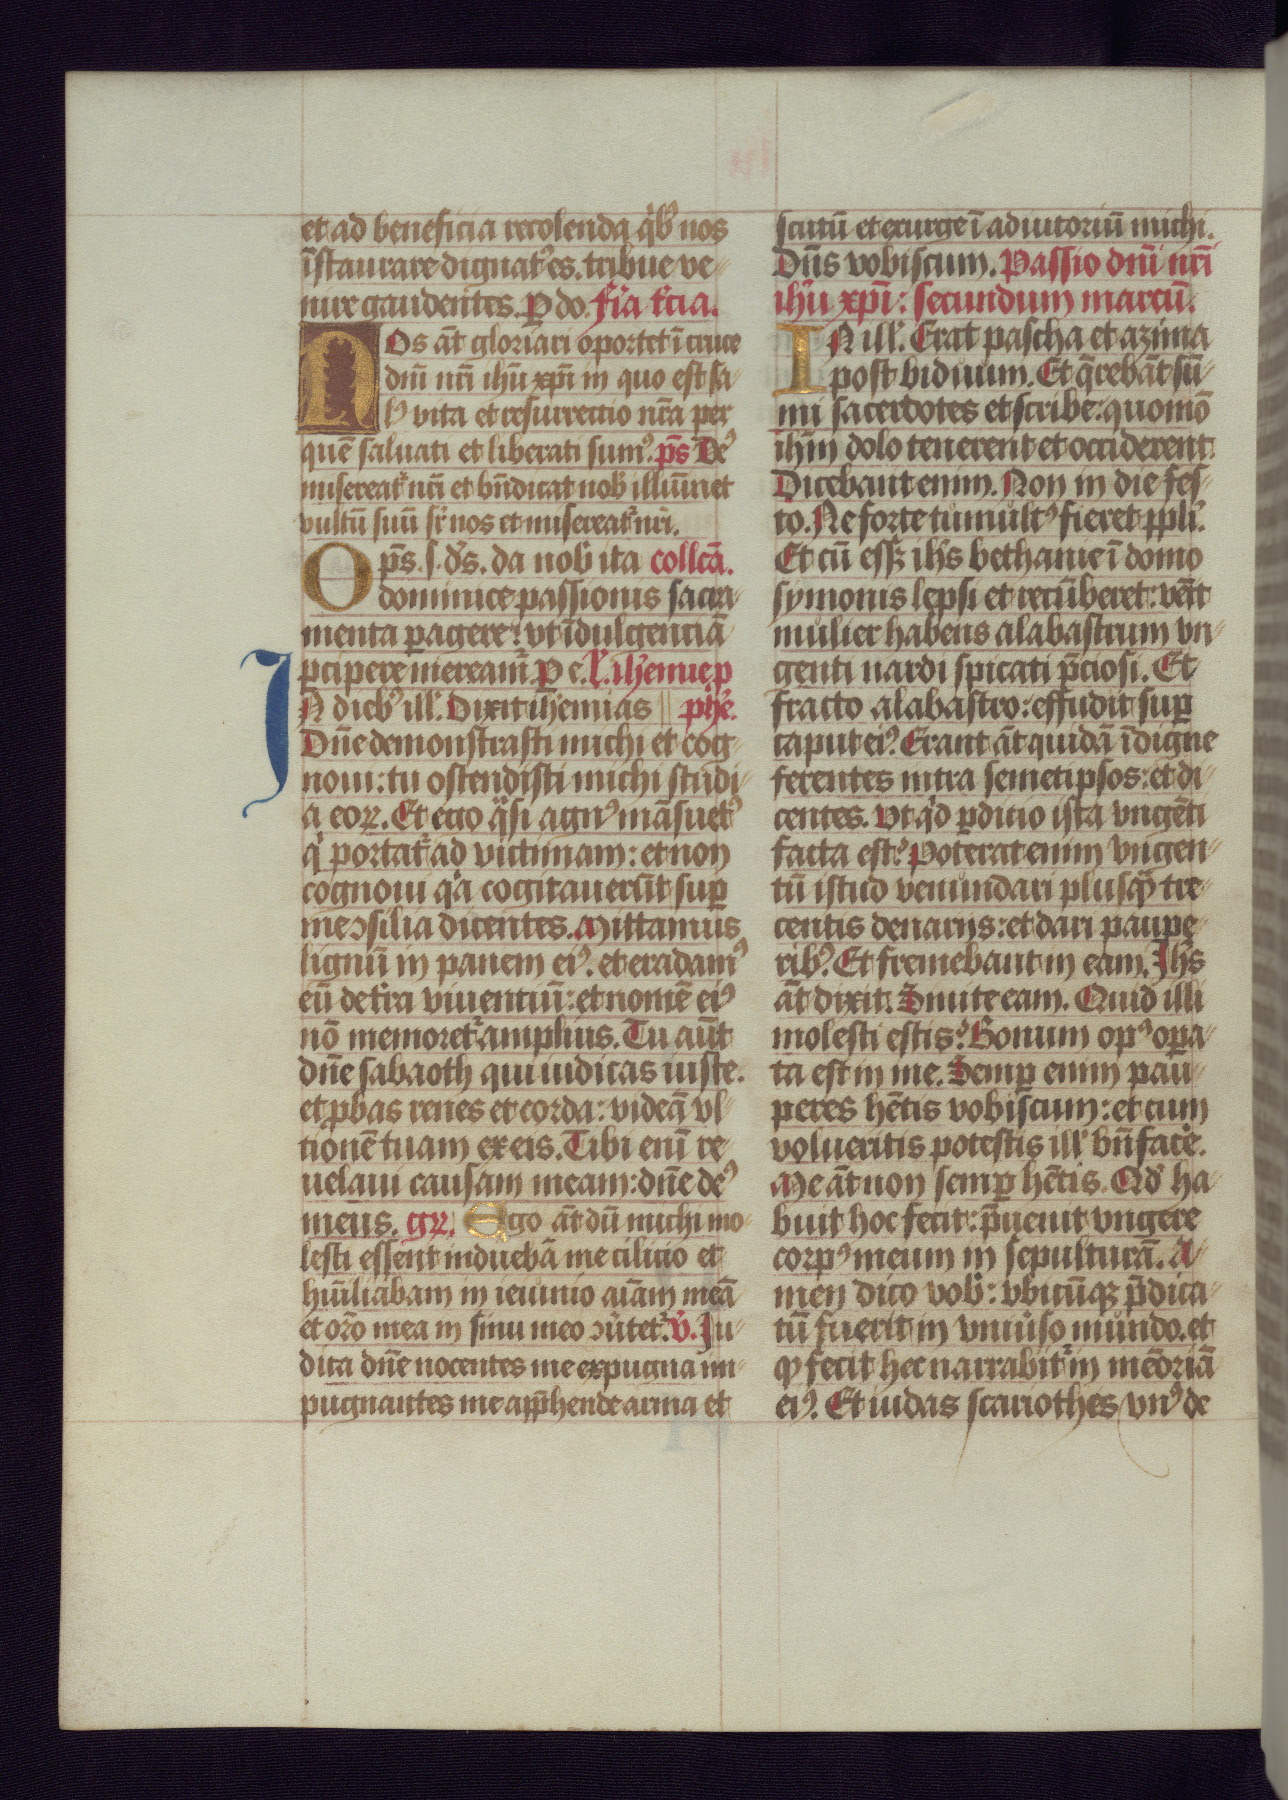 et ad beneficia recolenda q̇bꝰ nos
īstaurare dignatꝰ es. tribue ve-
nire gaudentes. ꝑ do. fīa t͛cia.
NOs āt gloriari oportet ī cruce
dnī nrī ihū xpī in quo est sa-
lꝰ vita et resurrectio nrā per
quē saluati et liberati sumꝰ. pꝰs Deꝰ
misereat᷑ nrī et bn̄dicat nob̾ illūinet
vultū suū sr̄ nos et misereat᷑ nrī.
Op̄s. s. ds̄. da nob̾ ita collcā.
dominice passionis sacra-
menta ꝑagere: vt īdulgenciā
ꝑcipere meream᷑. ꝑ e. l̄. ih̾emie ꝓ
IN diebꝰ ill̾. Dixit ih̾emias phē.
Dn̄e demonstrasti michi et cog-
noui: tu ostendisti michi studi-
a eoꝝ. Et ego q̄si agnꝰ māsuetꝰ
q̇ portat᷑ ad victimam: et non
cognoui q̇a cogitauerūt suꝑ
me ꝯsilia dicentes. Mittamus
lignū in panem eiꝰ. et eradamꝰ
eū de t͛ra viuentiū: et nomē eiꝰ
nō memoret᷑ amplius. Tu aūt
dn̄e sabaoth qui iudicas iuste.
et ꝓbas renes et corda: videā vl-
tionē tuam ex eis. Tibi enī re-
uelaui causam meam: dn̄e deꝰ
meus. gꝝ. Ego āt dū michi mo-
lesti essent induebā me cilicio et
hūiliabam in ieiunio aīam meā
et orō mea in sinu meo ꝯūtet᷑. v̄. Iu-
dica dn̄e nocentes me expugna im-
pugnantes me app̄hende arma et
scutū et exurge ī adiutoriū michi.
Dn̄s vobiscum. Passio dnī nrī
ihū xpī: secundum marcū.
IN ill̾. Erat pascha et azima
post biduum. Et q̄rebāt sū-
mi sacerdotes et scribe: quomō
ihm̄ dolo tenerent et occiderent.
Dicebant enim. Non in die fes-
to. Ne forte tumultꝰ fieret ppl̾i.
Et cū essꝫ ihs̄ bethanie ī domo
symonis lepsi et recūberet: vēit
mulier habens alabastrum vn-
genti nardi spicati p̄ciosi. Et
fracto alabastro: effudit suꝑ
caput eiꝰ. Erant āt quidā īdigne
ferentes intra semetipsos: et di-
centes. Vt q̇d ꝑditio ista vngēti
facta est? Poterat enim vngen-
tū istud venundari plusꝙ̄ tre-
centis denarijs: et dari paupe-
ribꝰ. Et fremebant in eam. Ihs̄
āt dixit. Sinite eam. Quid illi
molesti estis? Bonum opꝰ oꝑa-
ta est in me. Semꝑ enim pau-
peres hētis vobiscum: et cum
volueritis potestis ill̾ bn̄ facē.
Me āt non semꝑ hētis. Qd̾ ha-
buit hoc fecit: p̄uenit vngere
corpꝰ meum in sepulturā. A-
men dico vob̾: vbicūqꝫ p̄dica-
tū fuerit in vniūso mundo. et
ꝙ fecit hec narrabit᷑ in mēoriā
eiꝰ. Et iudas scariothes vnꝰ de